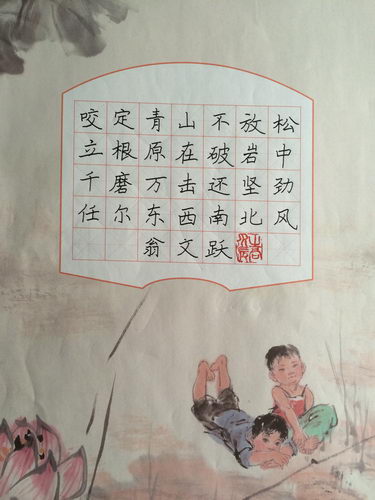 咬定青山不放松
立根原在破岩中
千磨万击还坚劲
任尔东西南北风
翁文跃